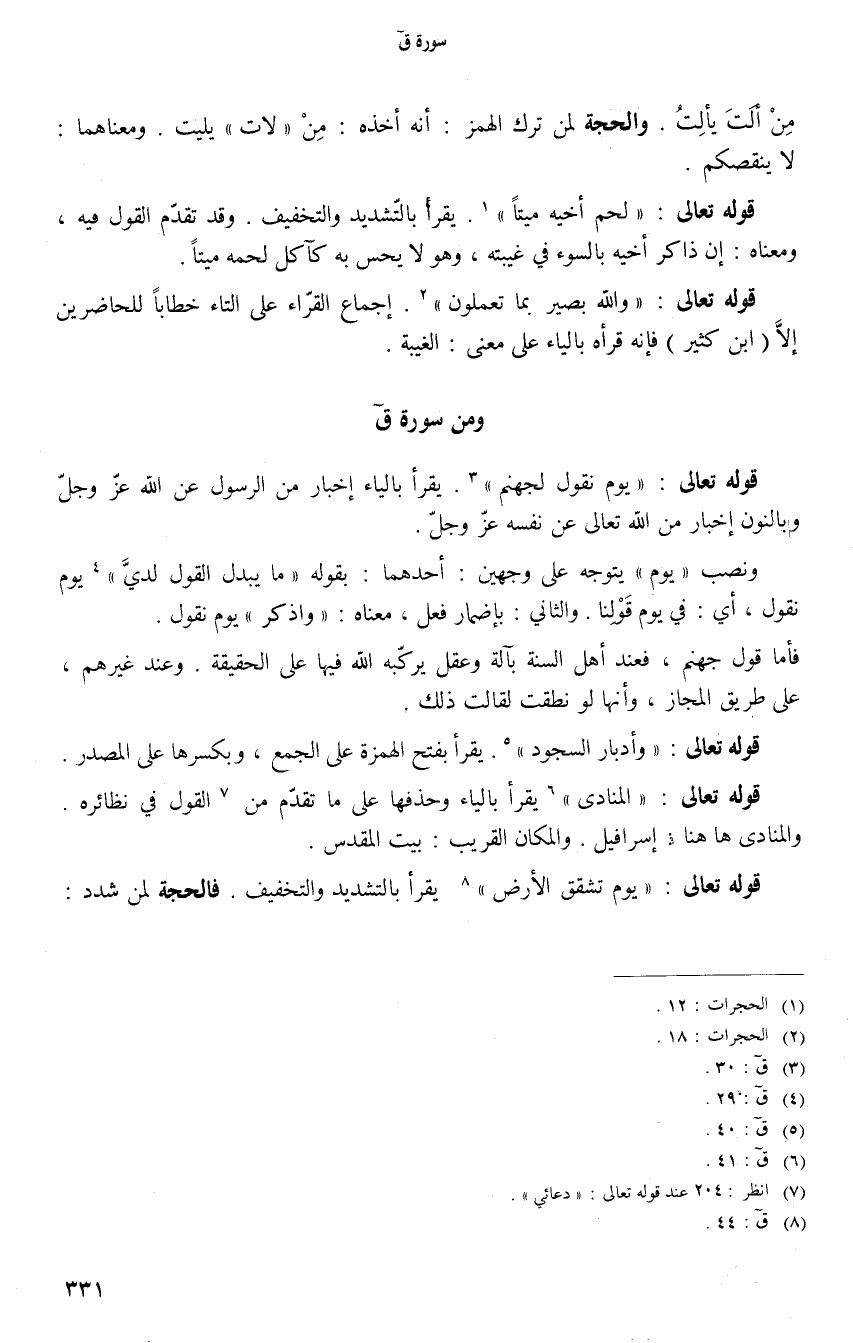 سورة قۤ
مِنْ أَلَتَ يألِتُ . والحجة لمن ترك الهمز : أنه أخذه : مِنْ « لات » يليت . ومعناهما :
لا ينقصكم .
قوله تعالى : « لحم أخيه ميتاً » ١ . يقرأ بالتّشديد والتخفيف . وقد تقدّم القول فيه ،
ومعناه : إن ذاكر أخيه بالسوء في غيبته ، وهو لا يحس به كآكل لحمه ميتاً .
قوله تعالى : « والله بصير بما تعملون » ٢ . إجماع القرّاء على التاء خطاباً للحاضرين
إلاَّ ( ابن كثير ) فإنه قرأه بالياء على معنى : الغيبة .
ومن سورة قۤ
قوله تعالى : « يوم نقول لجهنم » ٣ . يقرأ بالياء إخبار من الرسول عن الله عزّ وجلّ
وبالنون إخبار من الله تعالى عن نفسه عزّ وجلّ .
ونصب « يوم » يتوجه على وجهين : أحدهما : بقوله « ما يبدل القول لديَّ » ٤ يوم
نقول ، أي : في يوم قَوْلِنا . والثاني : بإضمار فعل ، معناه : « واذكر » يوم نقول .
فأما قول جهنم ، فعند أهل السنة بآلة وعقل يركّبه الله فيها على الحقيقة . وعند غيرهم ،
على طريق المجاز ، وأنها لو نطقت لقالت ذلك .
قوله تعالى : « وأدبار السجود » ٥ . يقرأ بفتح الهمزة على الجمع ، وبكسرها على المصدر .
قوله تعالى : « المنادى » ٦ يقرأ بالياء وحذفها على ما تقدّم من ٧ القول في نظائره .
والمنادى ها هنا : إسرافيل . والمكان القريب : بيت المقدس .
قوله تعالى : « يوم تشقق الأرض » ٨ يقرأ بالتشديد والتخفيف . فالحجة لمن شدد :
(١) الحجرات : ١٢ .
(٢) الحجرات : ١٨ .
(٣) قۤ : ٣٠ .
(٤) قۤ : ٢٩ .
(٥) قۤ : ٤٠ .
(٦) قۤ : ٤١ .
(٧) انظر : ٢٠٤ عند قوله تعالى : « دعائي » .
(٨) قۤ : ٤٤ .
٣٣١